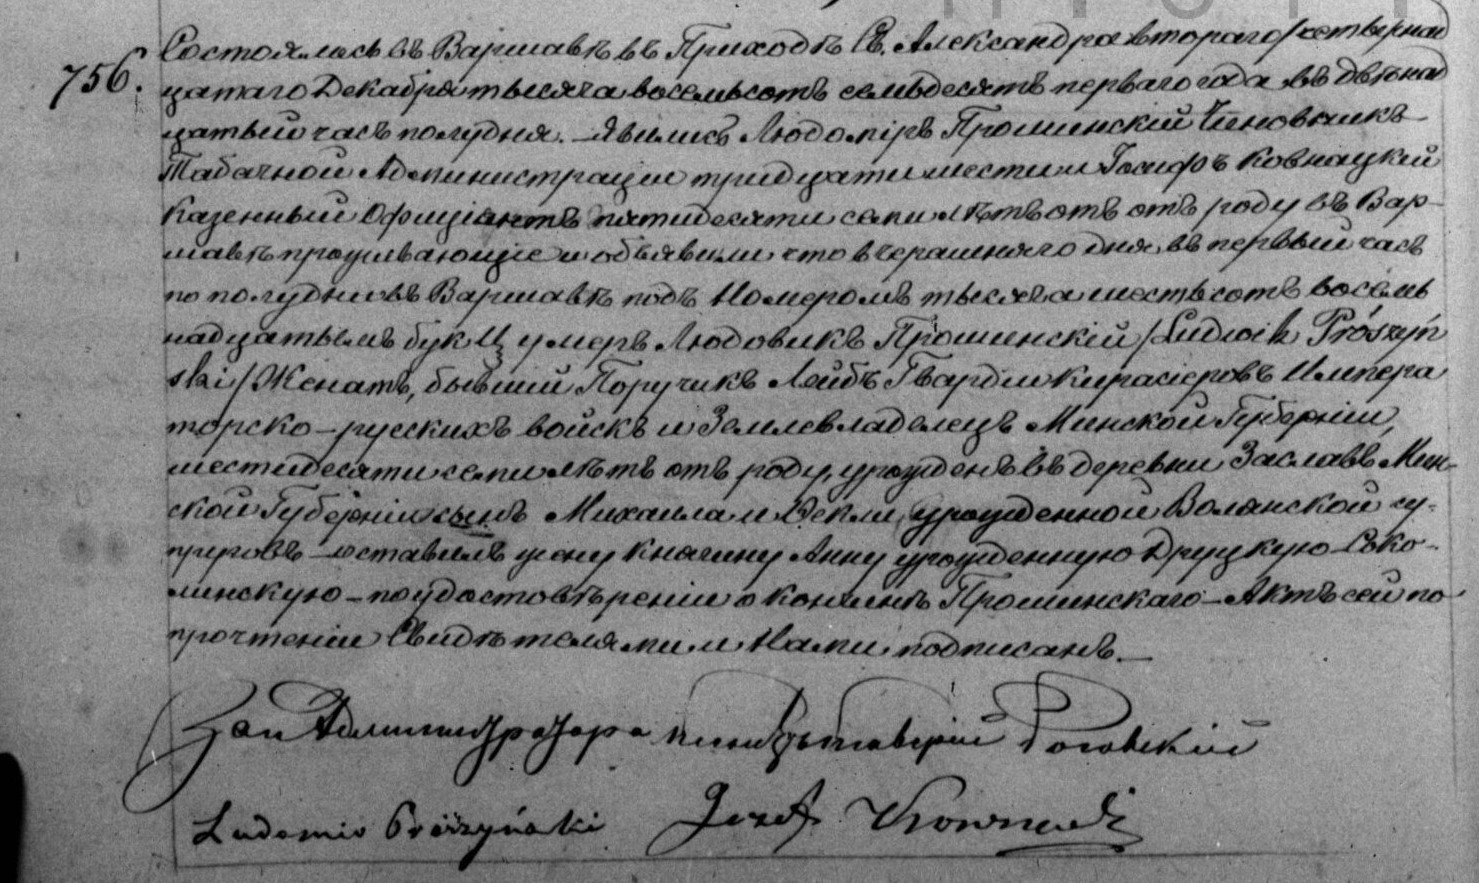 756.
Состоялось въ Варшавѣ въ Приходѣ Св. Александра втораго/четырнад
цатаго Декабря тысяча восемьсотъ семьдесятъ перваго года въ двѣнад
цатый часъ полудня. – Явились Людоміръ Прошинскій Чиновникъ
Табачной Администраціи тридцати шести и Іосифъ Ковнацкій
Казенный Офиціантъ пятидесяти семи лѣтъ отъ отъ роду въ Вар-
шавѣ проживающіе и объявили что вчерашняго дня въ первый часъ
по полудни въ Варшавѣ подъ Номеромъ тысяча шестьсотъ восемь
надцатымъ бук Ц умеръ Людовикъ Прошинскій /Ludwik Prószyń
ski/ Женатъ, бывшій Поручикъ Лейбъ Гвардіи Кирасіеровъ Импера
торско–русскихъ войскъ и Землевладелецъ Минской Губерніи,
шестидесяти семи лѣтъ отъ роду, урожденъ въ деревни Заславъ Мин-
ской Губерніи сынъ Михаила и Текли урожденной Волянской су-
пруговъ – оставилъ жену Княгину Анну урожденную Друцкую–Соко-
линскую – по удостовѣреніи о кончинѣ Прошинскаго – Актъ сей по
прочтеніи Свидѣтелями и Нами подписанъ. –
За Администратора Роговскій
Ludomir Prószyński Józef Kownacki